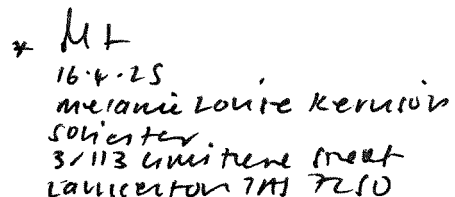 * ML
16.4.25
Melanie Louise Kerrison
Solicitor
3/113 Cimitiere Street
Launceston TAS 7250